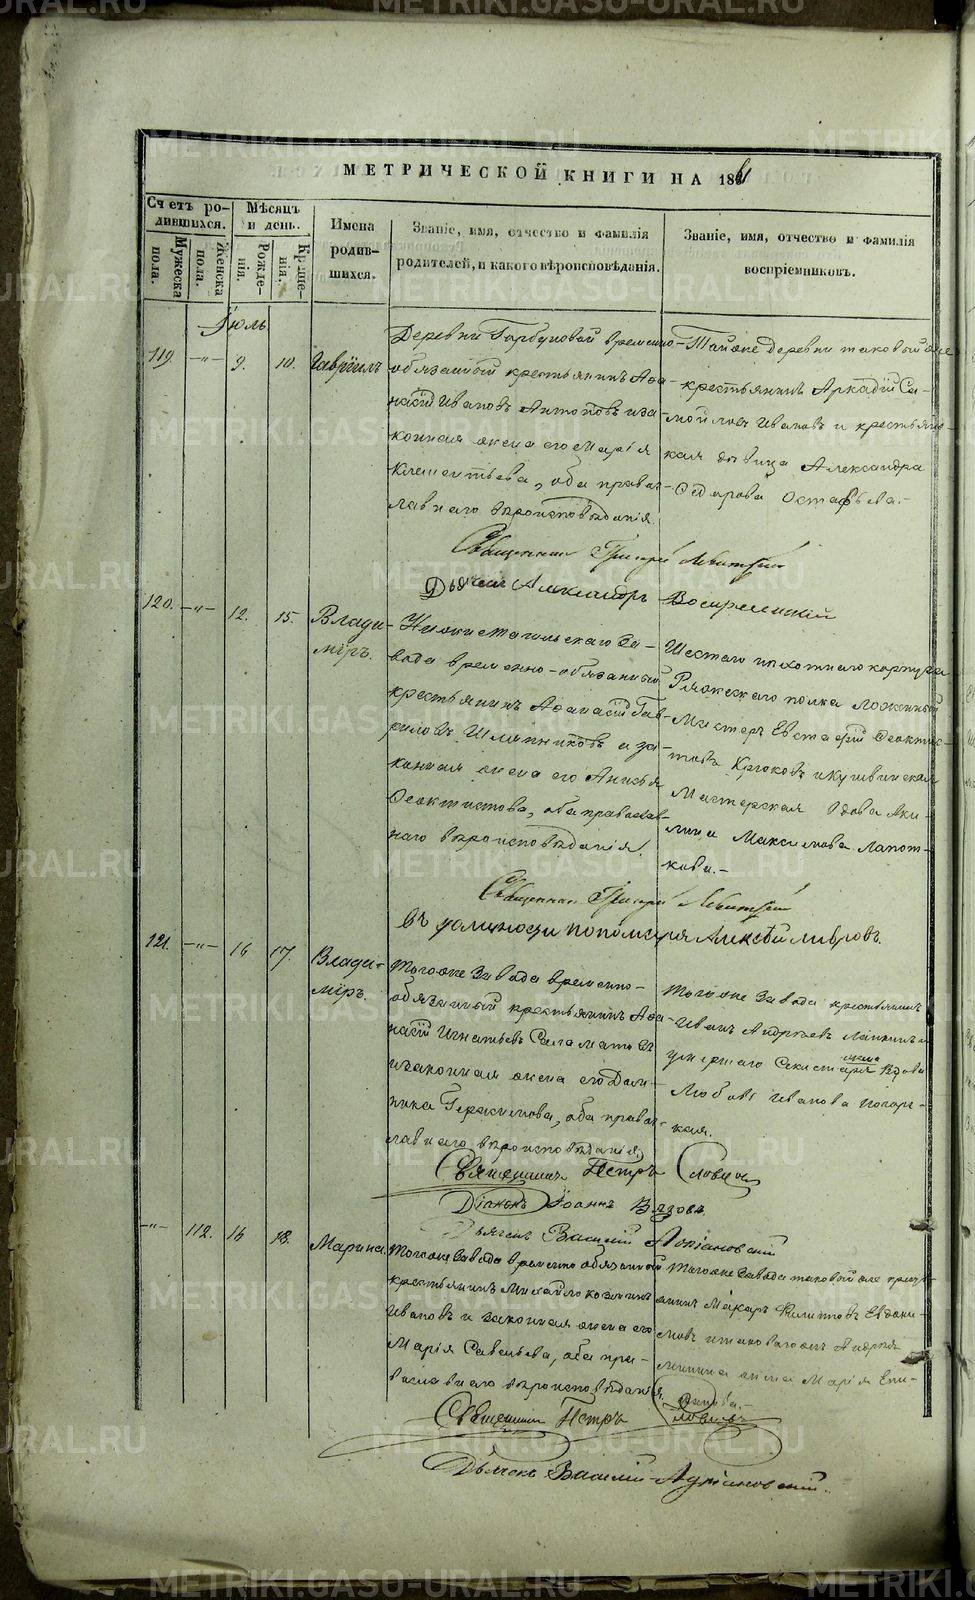 МЕТРИЧЕСКОЙ КНИГИ НА 1861
Счетъ родившихся.
Мѣсяцъ и день.
Имена родившихся.
Званіе, имя, отчество и фамилія родителей, и какого вѣроисповѣданія.
Званіе, имя, отчество и фамилія воспріемниковъ.
Мужеска пола.
Женска пола.
Рожденія.
Крещенія.
Іюль
119 —"— 9. 10. Гавріилъ
Деревни Горбуновой временно-
обязанный крестьянинъ Аѳа-
насій Ивановъ Антоновъ и за-
конная жена его Марія
Климентьева, оба право-
славнаго вѣроисповѣданія.
Тойже деревни таковый же
крестьянинъ Аркадій Са-
мойловъ Ивановъ и крестьянс-
кая дѣвица Александра
Ѳедорова Остафьева.
Священникъ Григорій Левитскій
Дьячекъ Александръ Воскресенскій
120. —"— 12. 15. Влади-
міръ.
Нижнетагильскаго За-
вода временно-обязанный
крестьянинъ Аѳанасій Гав-
риловъ Шляпниковъ и за-
конная жена его Анисья
Ѳеоктистова, оба православ-
наго вѣроисповѣданія.
Шестаго пѣхотнаго корпуса
Ряжскаго полка Ложенный
Мастеръ Евстафій Ѳеоктис-
товъ Крюковъ и Кушвинская
Мастерская вдова Аку-
лина Максимова Лапот-
кова.
Священникъ Григорій Левитскій
въ должности пономаря Алексѣй Лавровъ.
121. —"— 16 17. Влади-
міръ.
Тогоже Завода временно-
обязанный крестьянинъ Аѳа-
насій Игнатьевъ Саламатовъ
и законная жена его Дом-
ника Герасимова, оба право-
славнаго вѣроисповѣданія.
Тогоже Завода крестьянинъ
Иванъ Андреевъ Лапинъ и
умершаго Секретаря жена Вдова
Любовь Иванова Погор-
кая.
Священникъ Петръ Словцовъ
Діаконъ Іоаннъ Вязовъ
Дьячекъ Василій Адріановскій
—"— 112. 16 18. Марина
Тогоже Завода временно обязанный
крестьянинъ Михайло Козминъ
Ивановъ и законная жена его
Марія Савельева, оба пра-
вославнаго вѣроисповѣданія.
Тогоже Завода таковый же крестья-
нинъ Макаръ Филиповъ Евдоки-
мовъ и таковагожъ Андрея
Минина жена Марія Епи-
Священникъ Петръ Словцовъ
Дьячекъ Василій Адріановскій.
METRIKI.GASO-URAL.RU